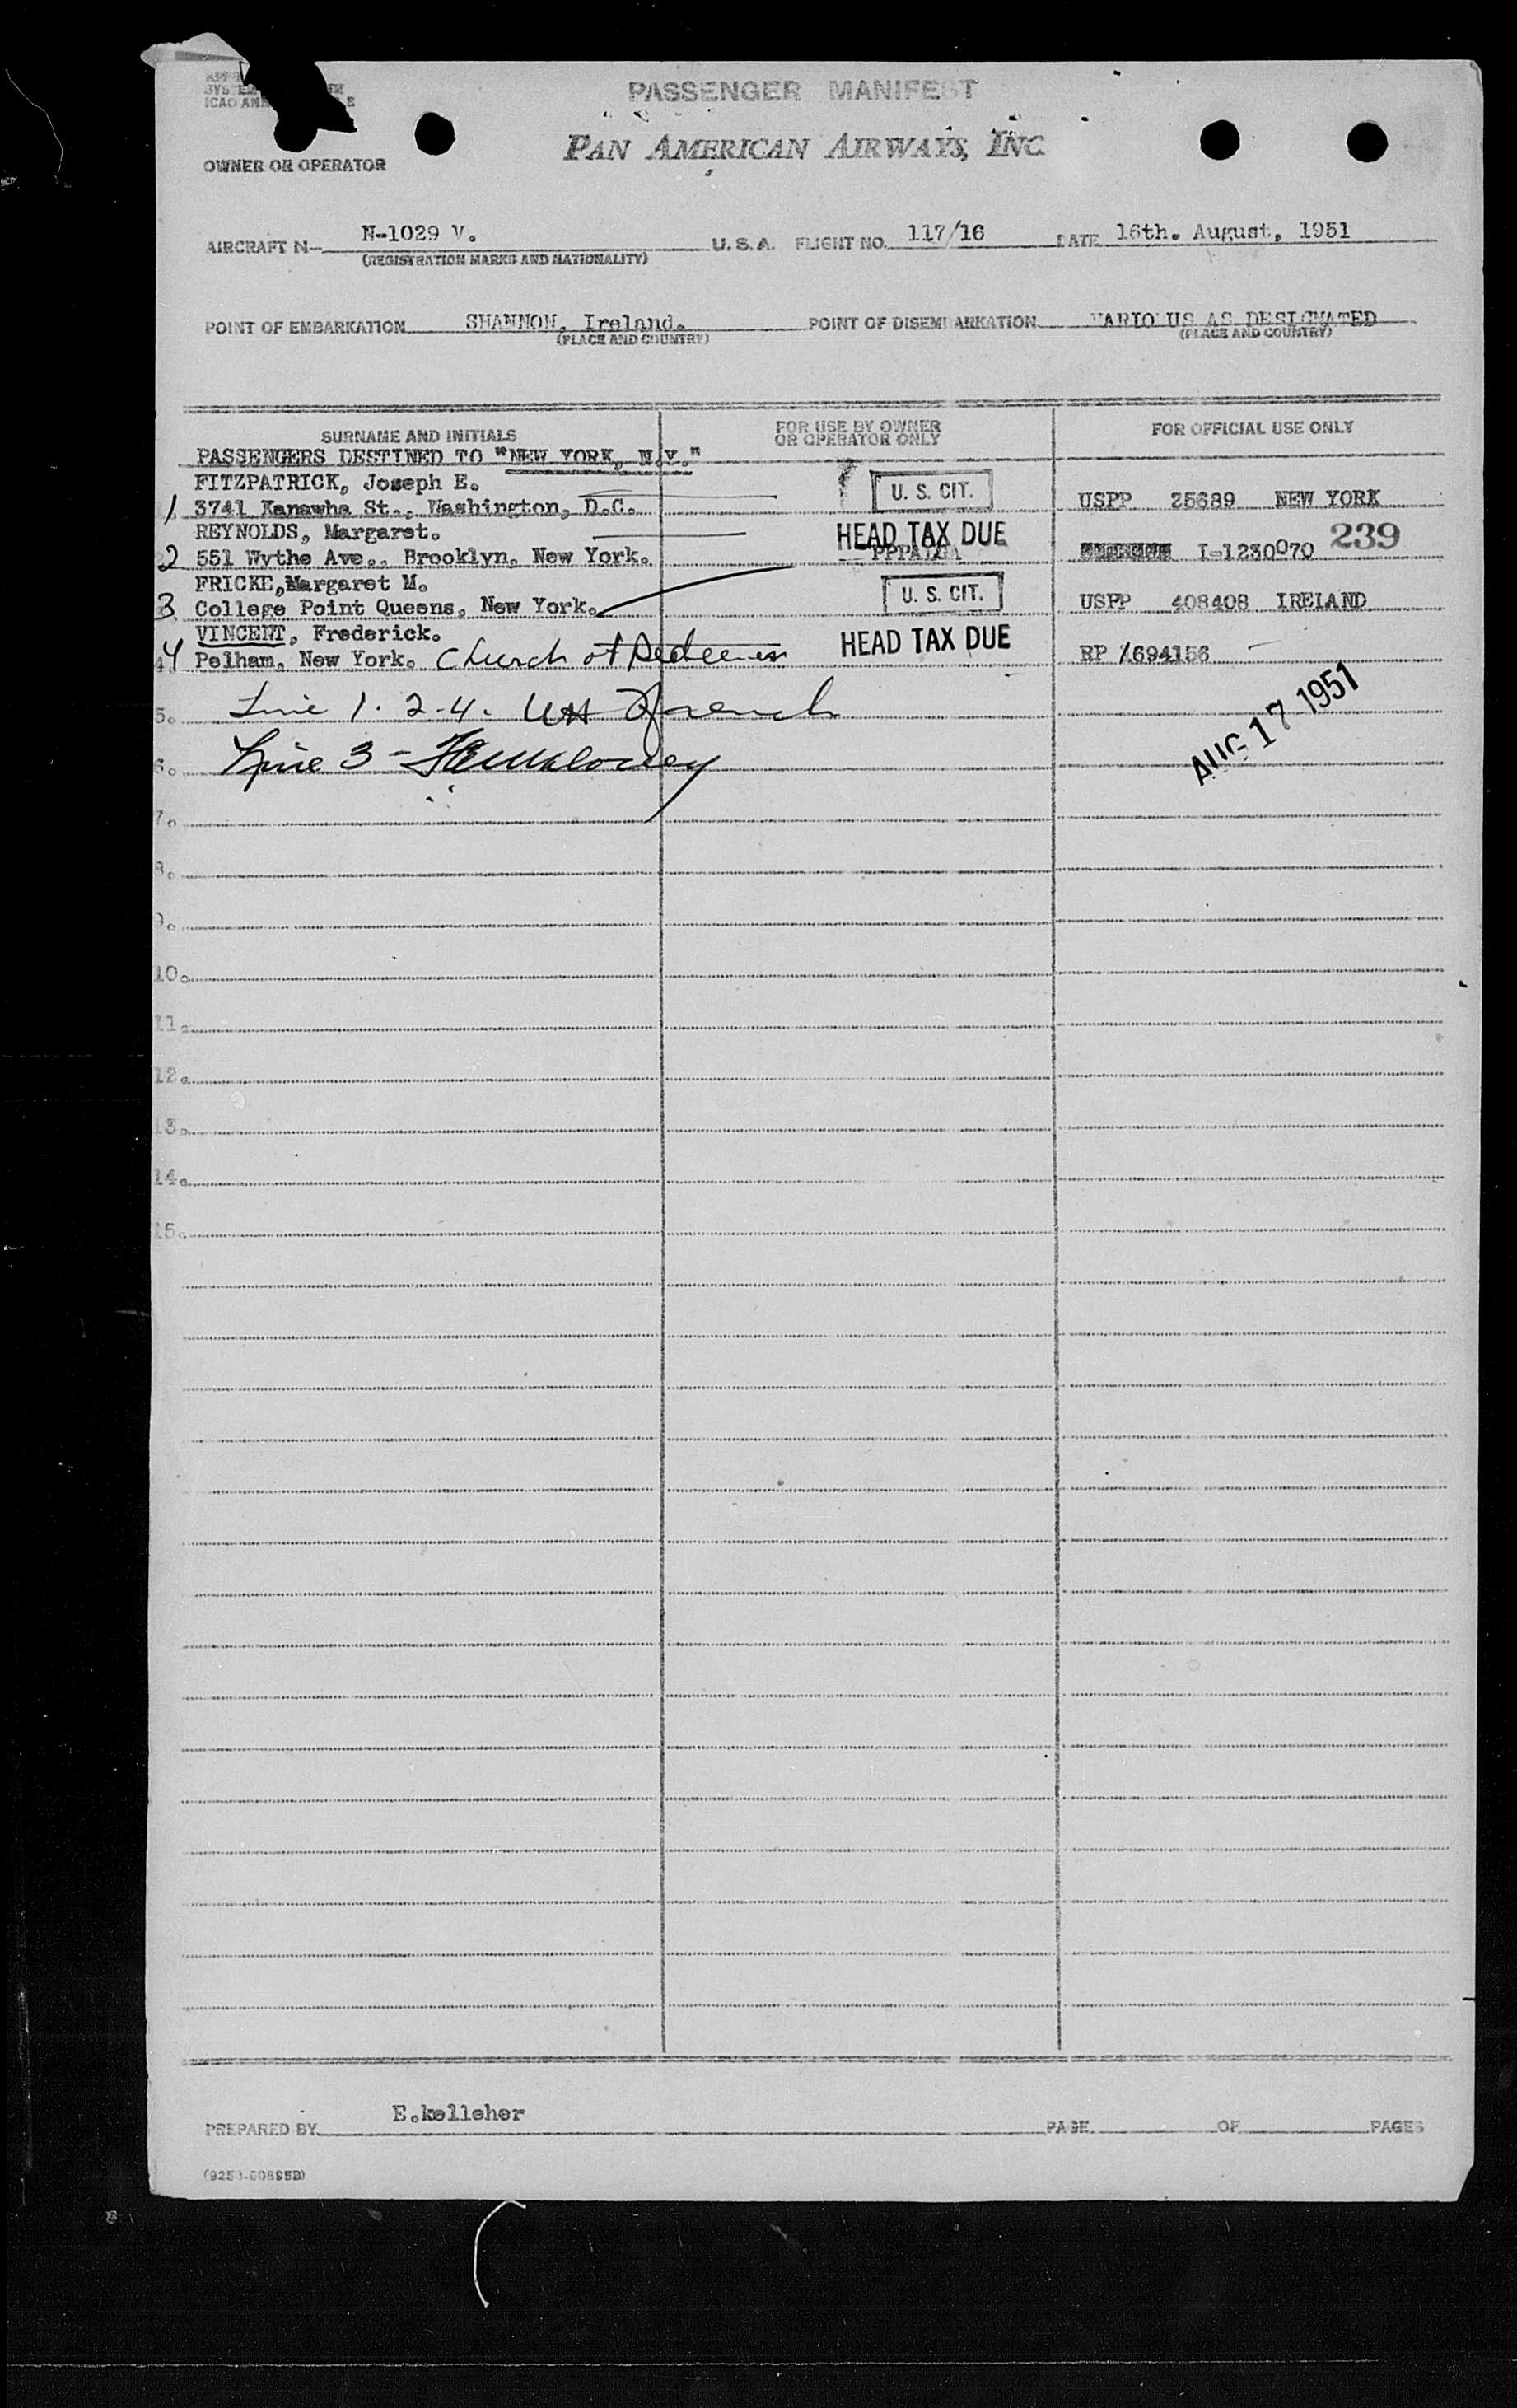 PASSENGER MANIFEST
PAN AMERICAN AIRWAYS, INC.
OWNER OR OPERATOR
AIRCRAFT N- N-1029 V. U.S.A. FLIGHT NO. 117/16 DATE 16th. August, 1951
(REGISTRATION MARKS AND NATIONALITY)
POINT OF EMBARKATION SHANNON, Ireland. POINT OF DISEMBARKATION VARIOUS AS DESIGNATED
(PLACE AND COUNTRY) (PLACE AND COUNTRY)
SURNAME AND INITIALS FOR USE BY OWNER OR OPERATOR ONLY FOR OFFICIAL USE ONLY
PASSENGERS DESTINED TO "NEW YORK, N.Y."
FITZPATRICK, Joseph E. U. S. CIT.
1 3741 Kanawha St., Washington, D.C. USPP 25689 NEW YORK
REYNOLDS, Margaret. HEAD TAX DUE 239
2 551 Wythe Ave., Brooklyn, New York. I-1230070
FRICKE,Margaret M. U. S. CIT.
3 College Point Queens, New York. USPP 408408 IRELAND
VINCENT, Frederick. HEAD TAX DUE
4 Pelham, New York. Church of Redeemer BP 694156
AUG 17 1951
5. Line 1. 2-4. French
6. Line 3 - Maloney
7.
8.
9.
10.
11.
12.
13.
14.
15.
E.kelleher
PREPARED BY PAGE OF PAGES